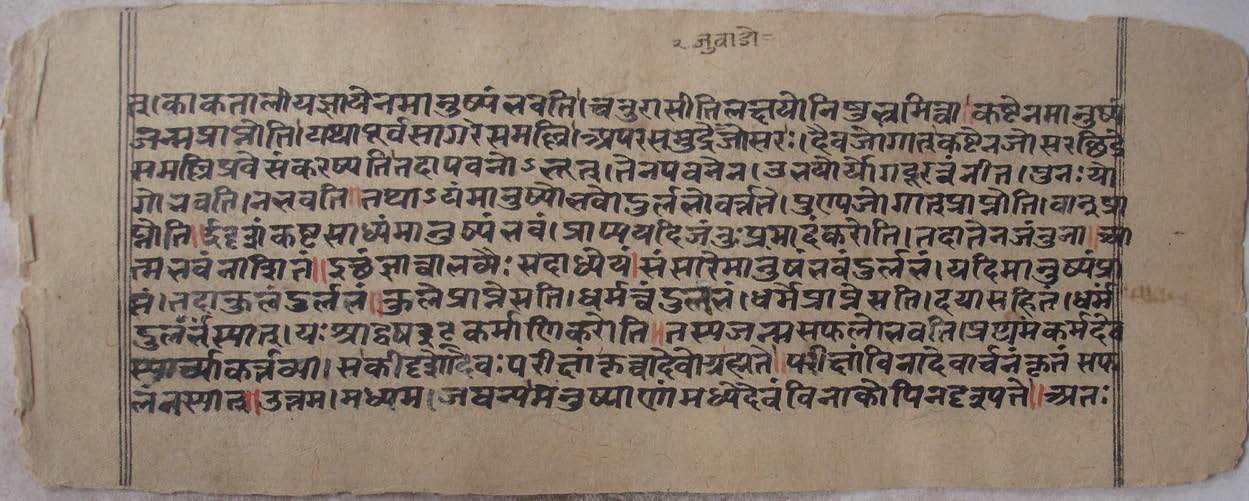 २ जुवाडो
त्। काकतालीयन्यायेनमानुष्यंभवति। चतुराशीतिलक्षयोनि कष्टेनमानुष्यं
जन्मप्राप्नोति। यथापूर्वसागरेसमल्लि। अपरसमुद्रेजोसरः। दैवजोगात्कष्टेनजोसरछिद्रे
समल्लिप्रवेसंकरष्यतितदापवनोऽभूत्। तेनपवनेन। उभयोर्योग नीत। पुनः यो
गोभवति। नभवति॥ तथाऽयंमानुष्योभवोदुर्लभोवर्त्तते। पुण्यजोगात्प्राप्नोति। वानप्रा
प्नोति॥ ईदृशंकष्टसाध्यंमानुष्यंभवं। प्राप्ययदिजंतुःप्रमादंकरोति। तदातेनजंतुना॥ आ
त्मभवंनाशितं॥ सदाध्येयं। संसारेमानुषंभवंदुर्लभं। यदिमानुष्यंप्रा
प्तं। तदाकुलंदुर्लभं॥ कुलेप्राप्तेसति। धर्मत्वंदुर्लभं। धर्मेप्राप्तेसति। दयासहितं। धर्मं
दुर्लभंस्यात्। यः श्राद्धषट्कर्माणिकरोति॥ तस्यजन्मसफलोभवति। प्रथमकर्मदेव
स्यार्चाकर्त्तव्या। सकीदृशोदेवः परीक्षांकृत्वादेवोगृह्यते॥ परीक्षांविनादेवार्चनंकृतंसफ
लंनस्यात्॥ उत्तम। मध्यम। जघन्यमनुष्याणांमध्येदैवंविनाकोपिनदृश्यते॥ अतः